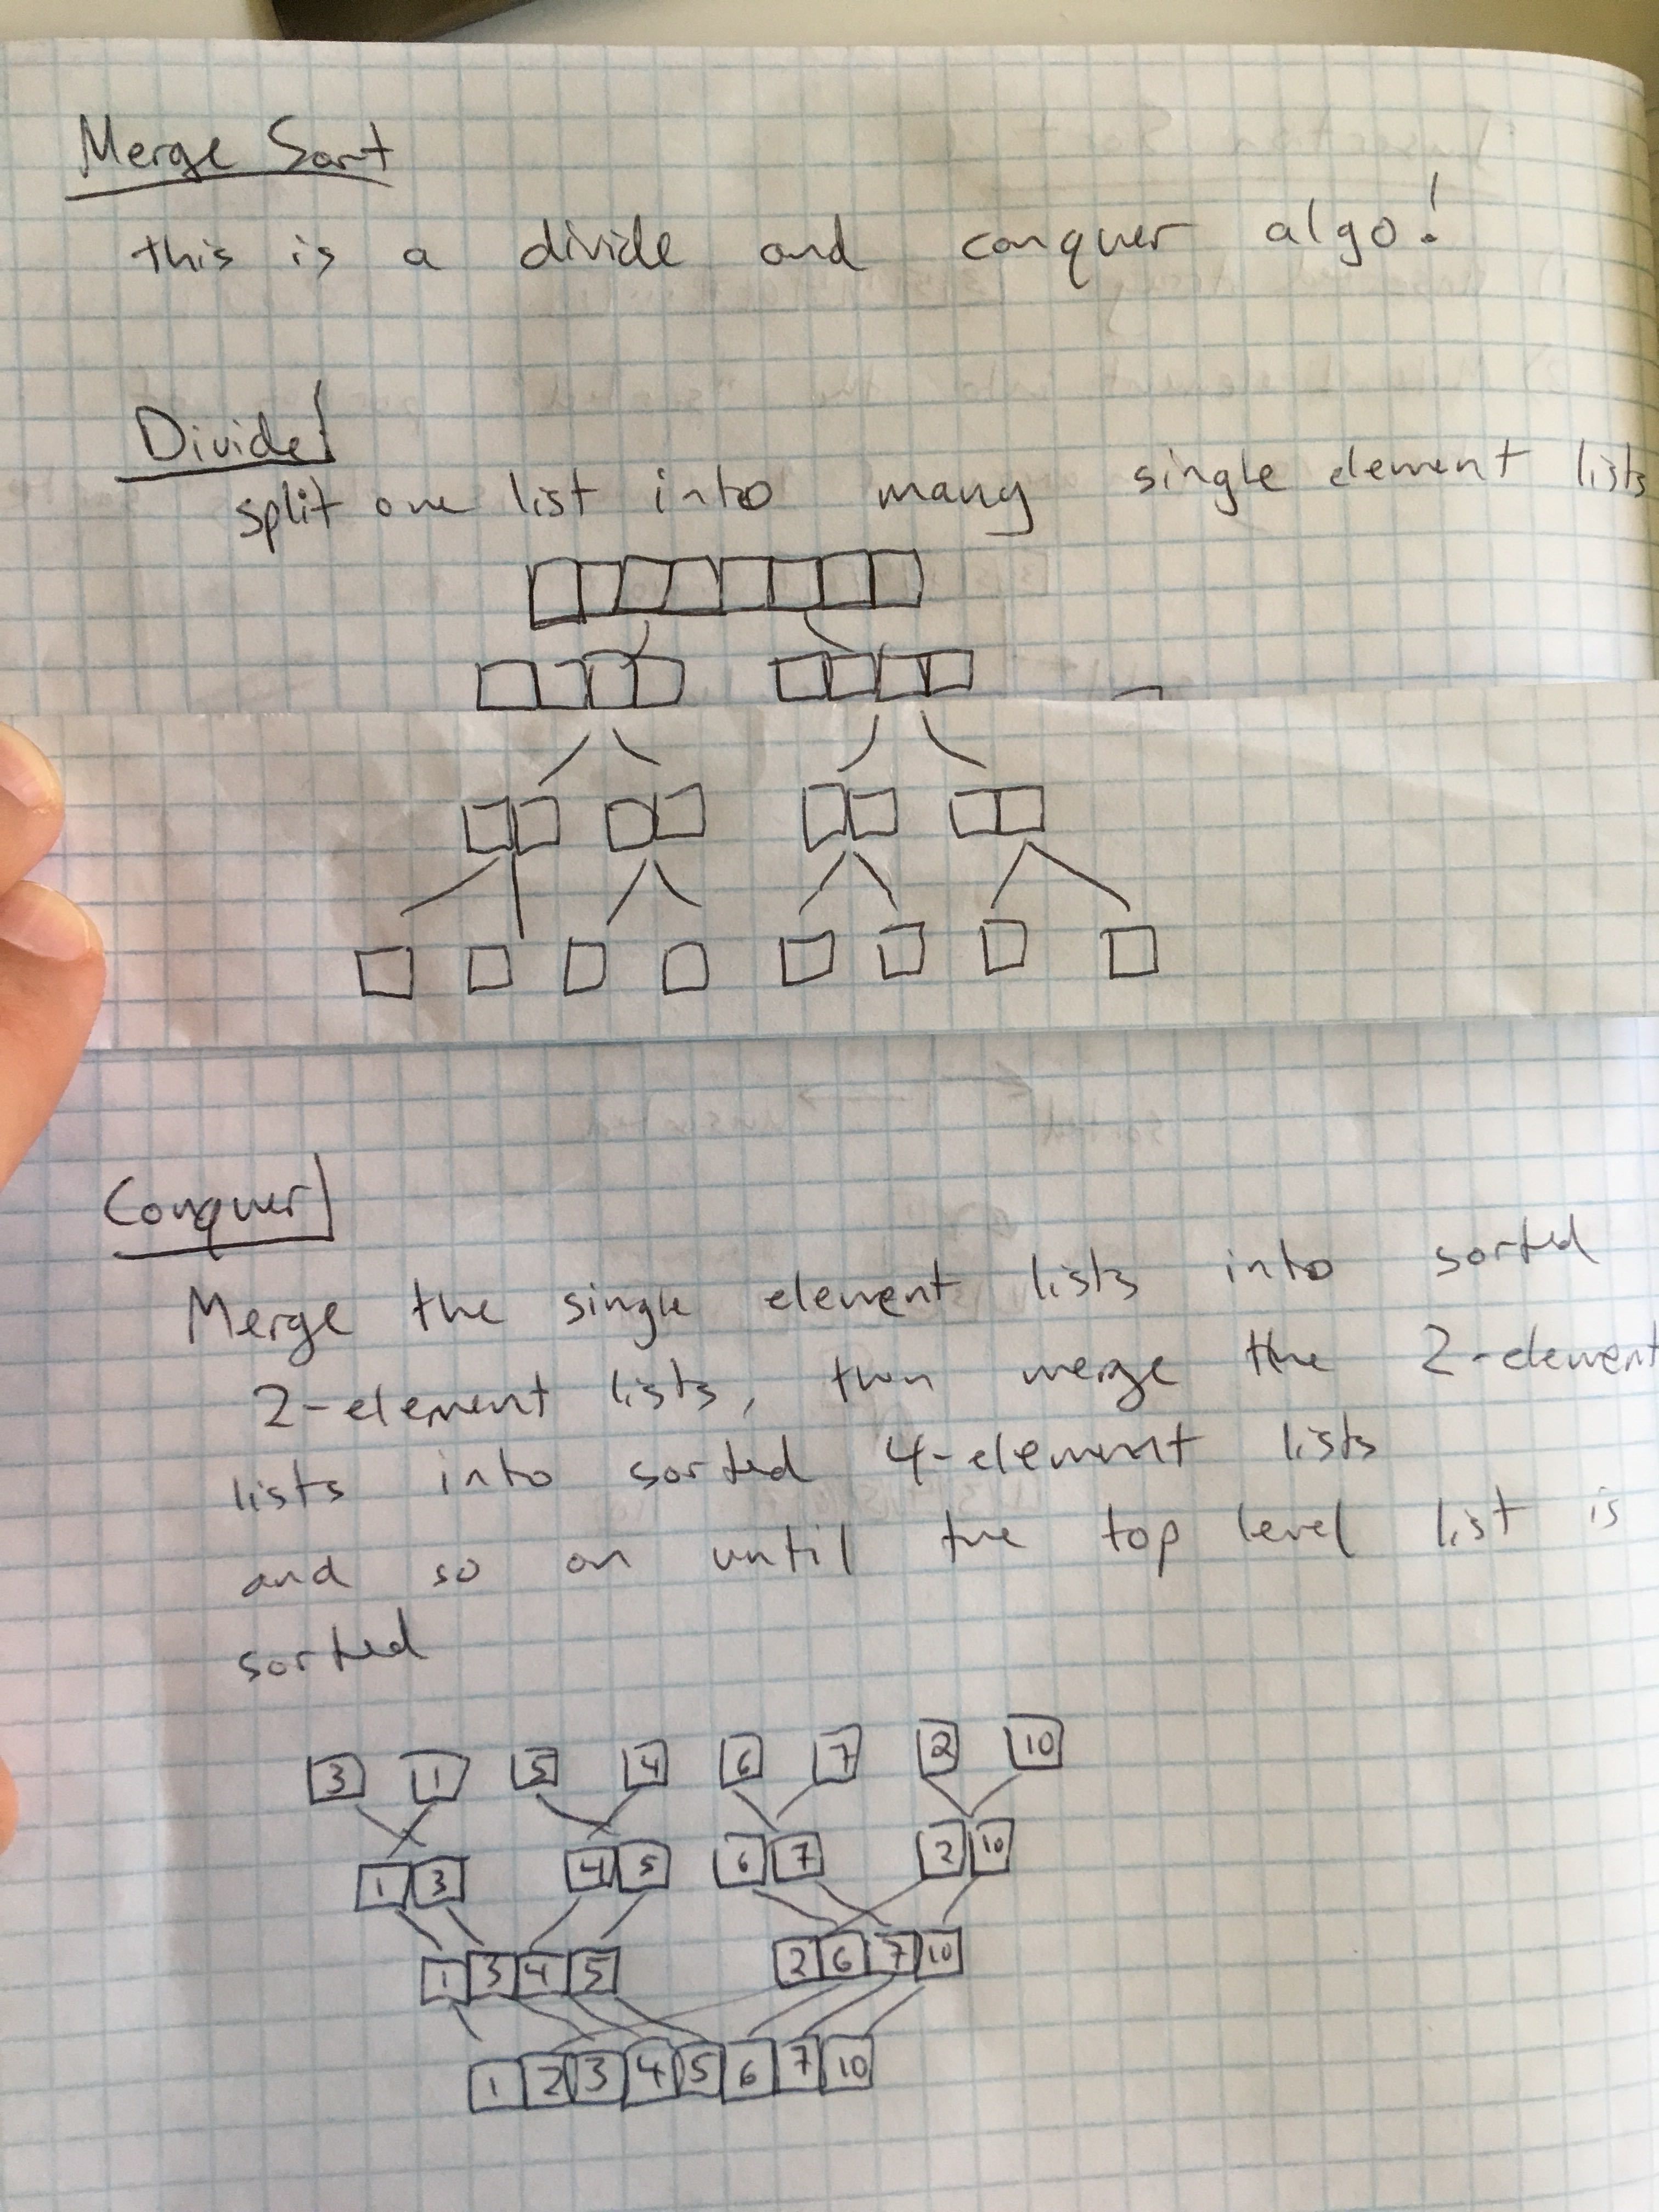 Merge Sort
this is a divide and conquer algo!
Divide
split one list into many single element lists
Conquer
Merge the single element lists into sorted
2-element lists, then merge the 2-element
lists into sorted 4-element lists
and so on until the top level list is
sorted
3 1 5 4 6 7 2 10
1 3 4 5 6 7 2 10
1 3 4 5 2 6 7 10
1 2 3 4 5 6 7 10